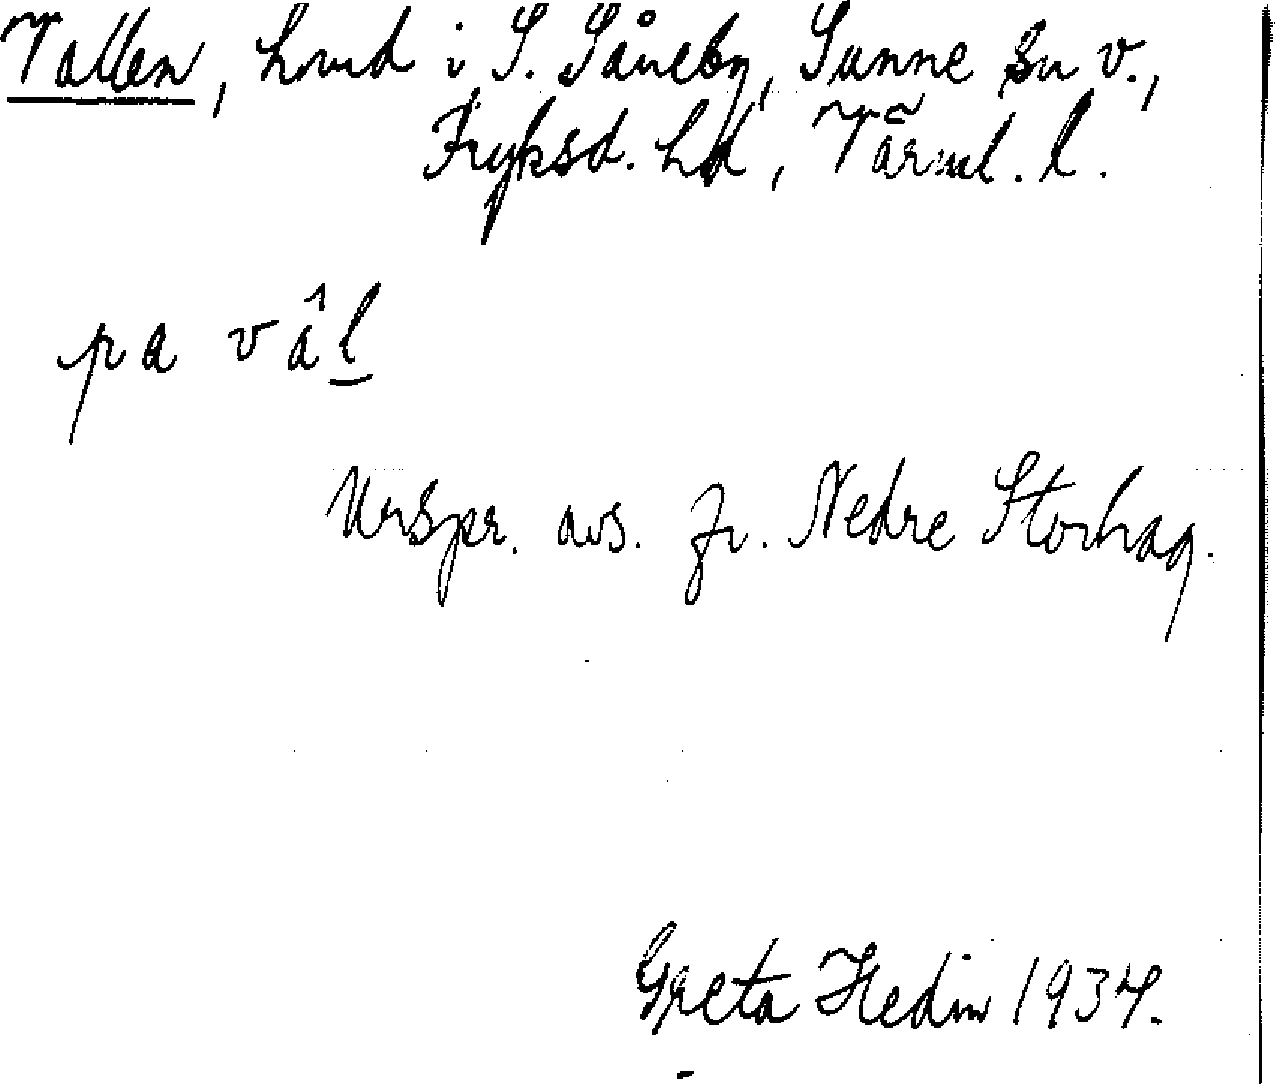 Vallen, hmd i S. Såneby, Sunne sn v.,
Fryksd. hd, Värml. l.
pa vâl
Urspr. avs. fr. Nedre Storhag.
Greta Hedin 1934.